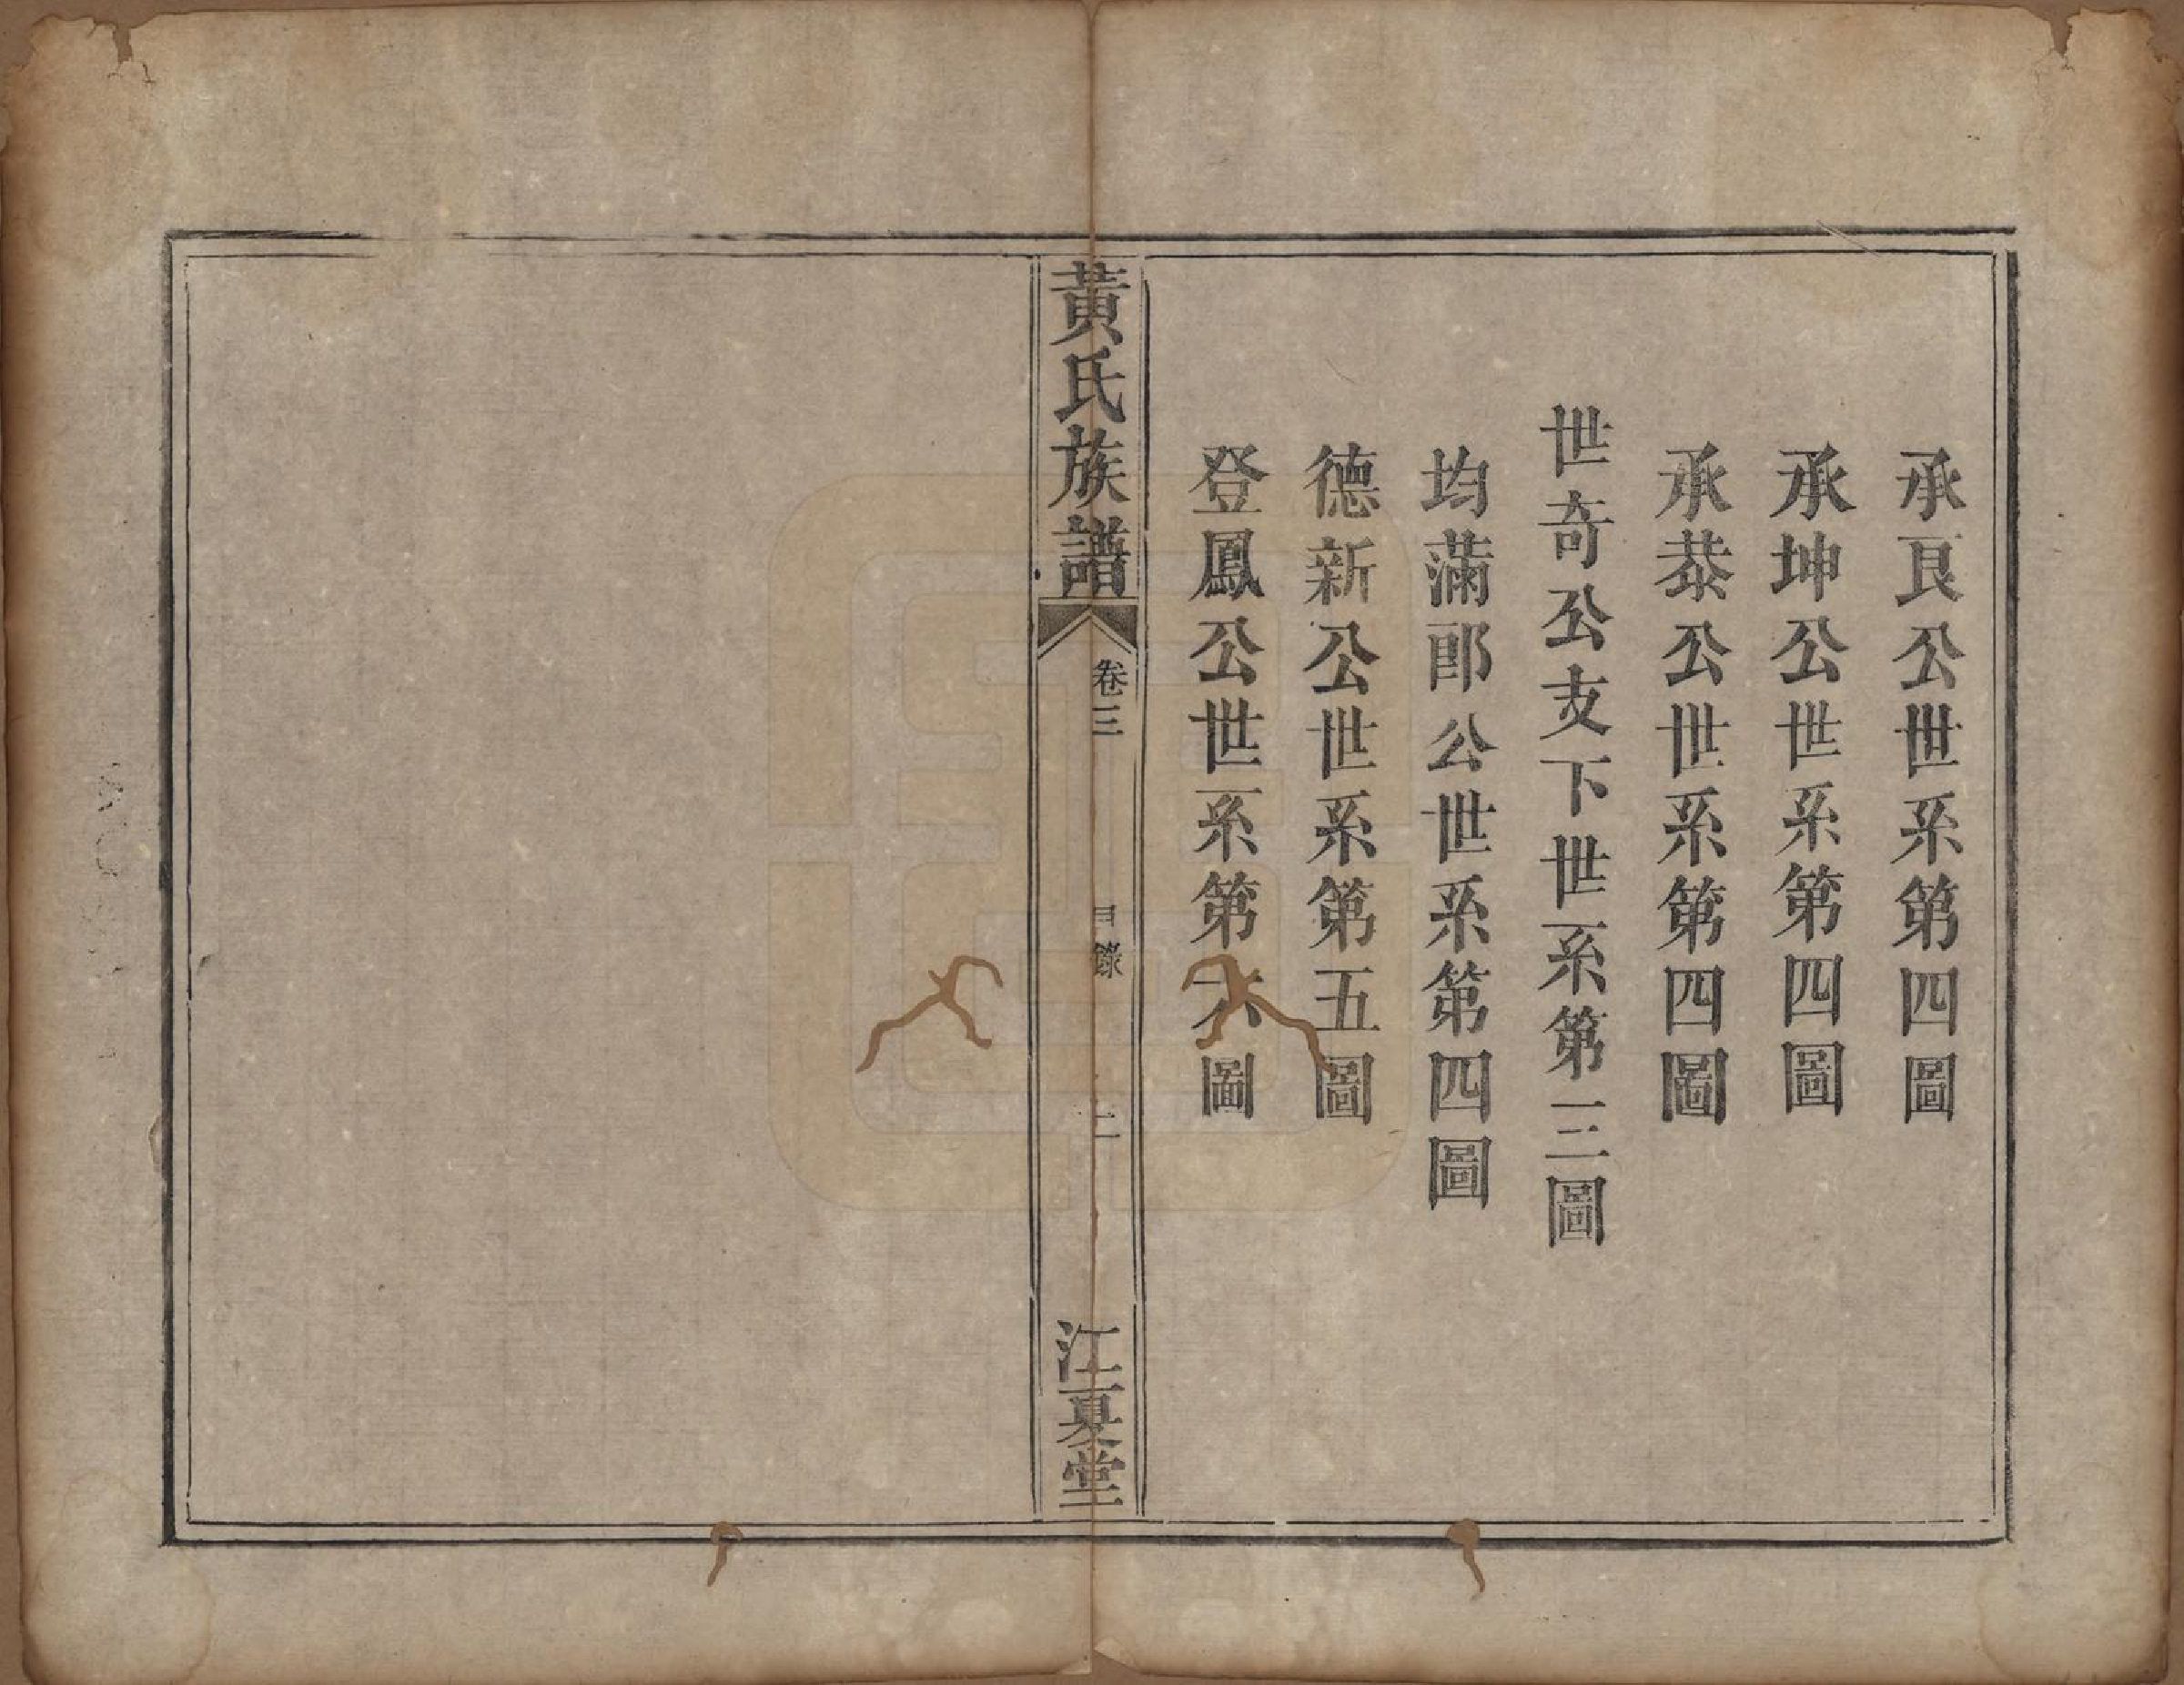 承艮公世系第四圖
承坤公世系第四圖
承㳟公世系第四圖
世奇公支下世系第三圖
均滿郎公世系第四圖
德新公世系第五圖
登鳳公世系第六圖
黃氏族譜
卷三
目錄
二
江夏堂